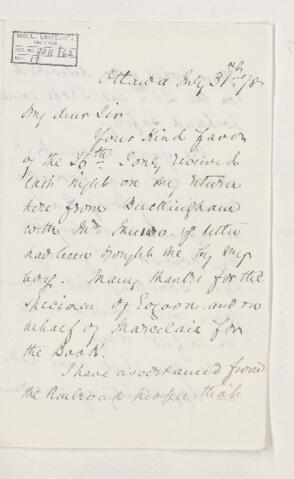 McGILL UNIVERSITY
ACC. NO. 2211/62
REF. 17
Ottawa July 31st /78
My dear Sir
Your Kind favor
of the 26th I only received
last night on my return
here from Buckingham
with Mrs. Munro. Yr letter
had been brought me by my
boys. Many thanks for the
specimen of Eozoon and on
behalf of for
the Book.
I have ascertained from
the Railroad people that